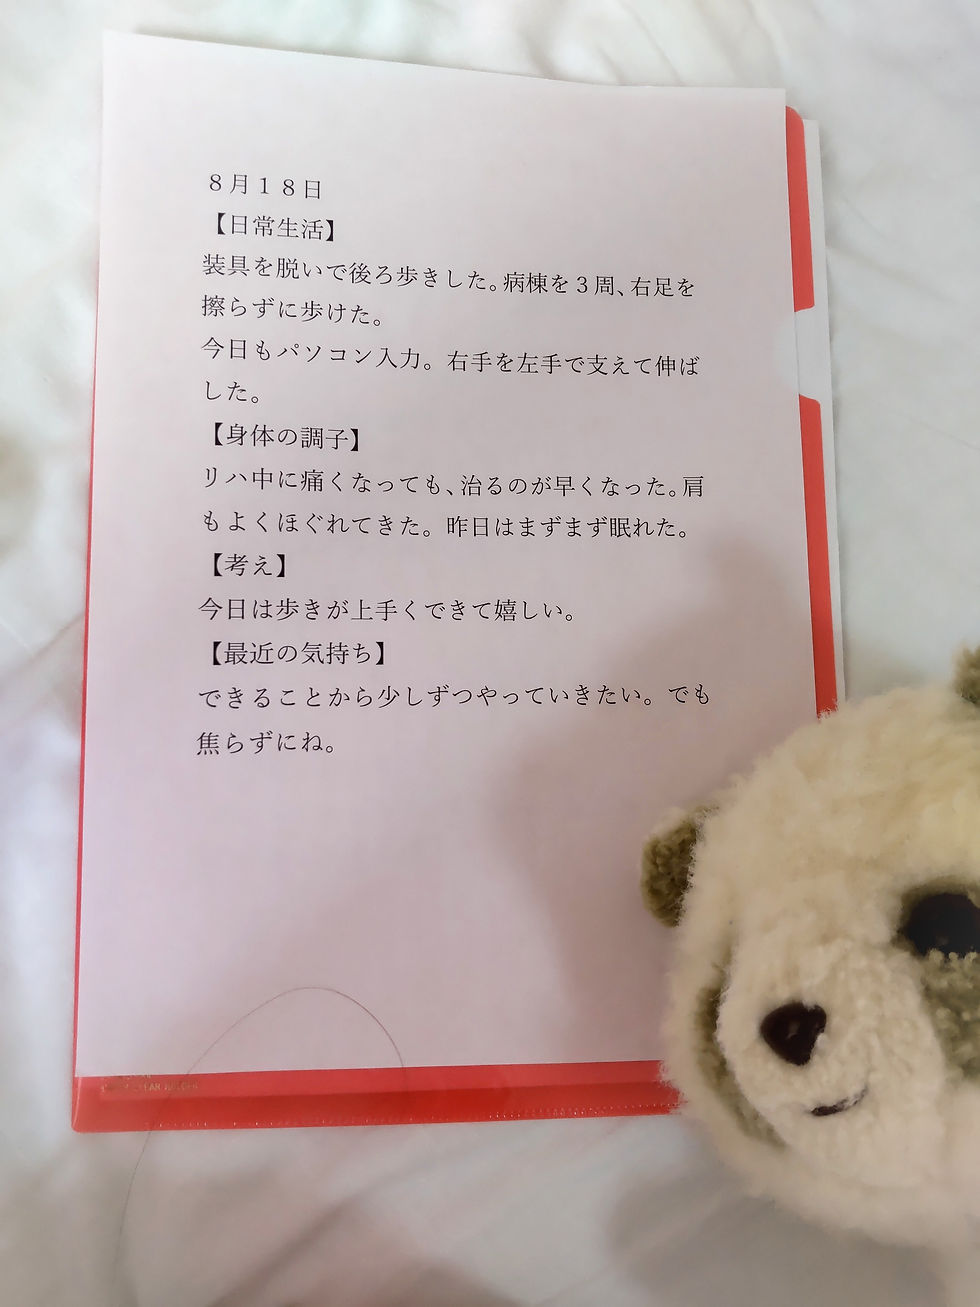 ８月１８日
【日常生活】
装具を脱いで後ろ歩きした。病棟を３周、右足を
擦らずに歩けた。
今日もパソコン入力。右手を左手で支えて伸ば
した。
【身体の調子】
リハ中に痛くなっても、治るのが早くなった。肩
もよくほぐれてきた。昨日はまずまず眠れた。
【考え】
今日は歩きが上手くできて嬉しい。
【最近の気持ち】
できることから少しずつやっていきたい。でも
焦らずにね。
CLEAR HOLDER